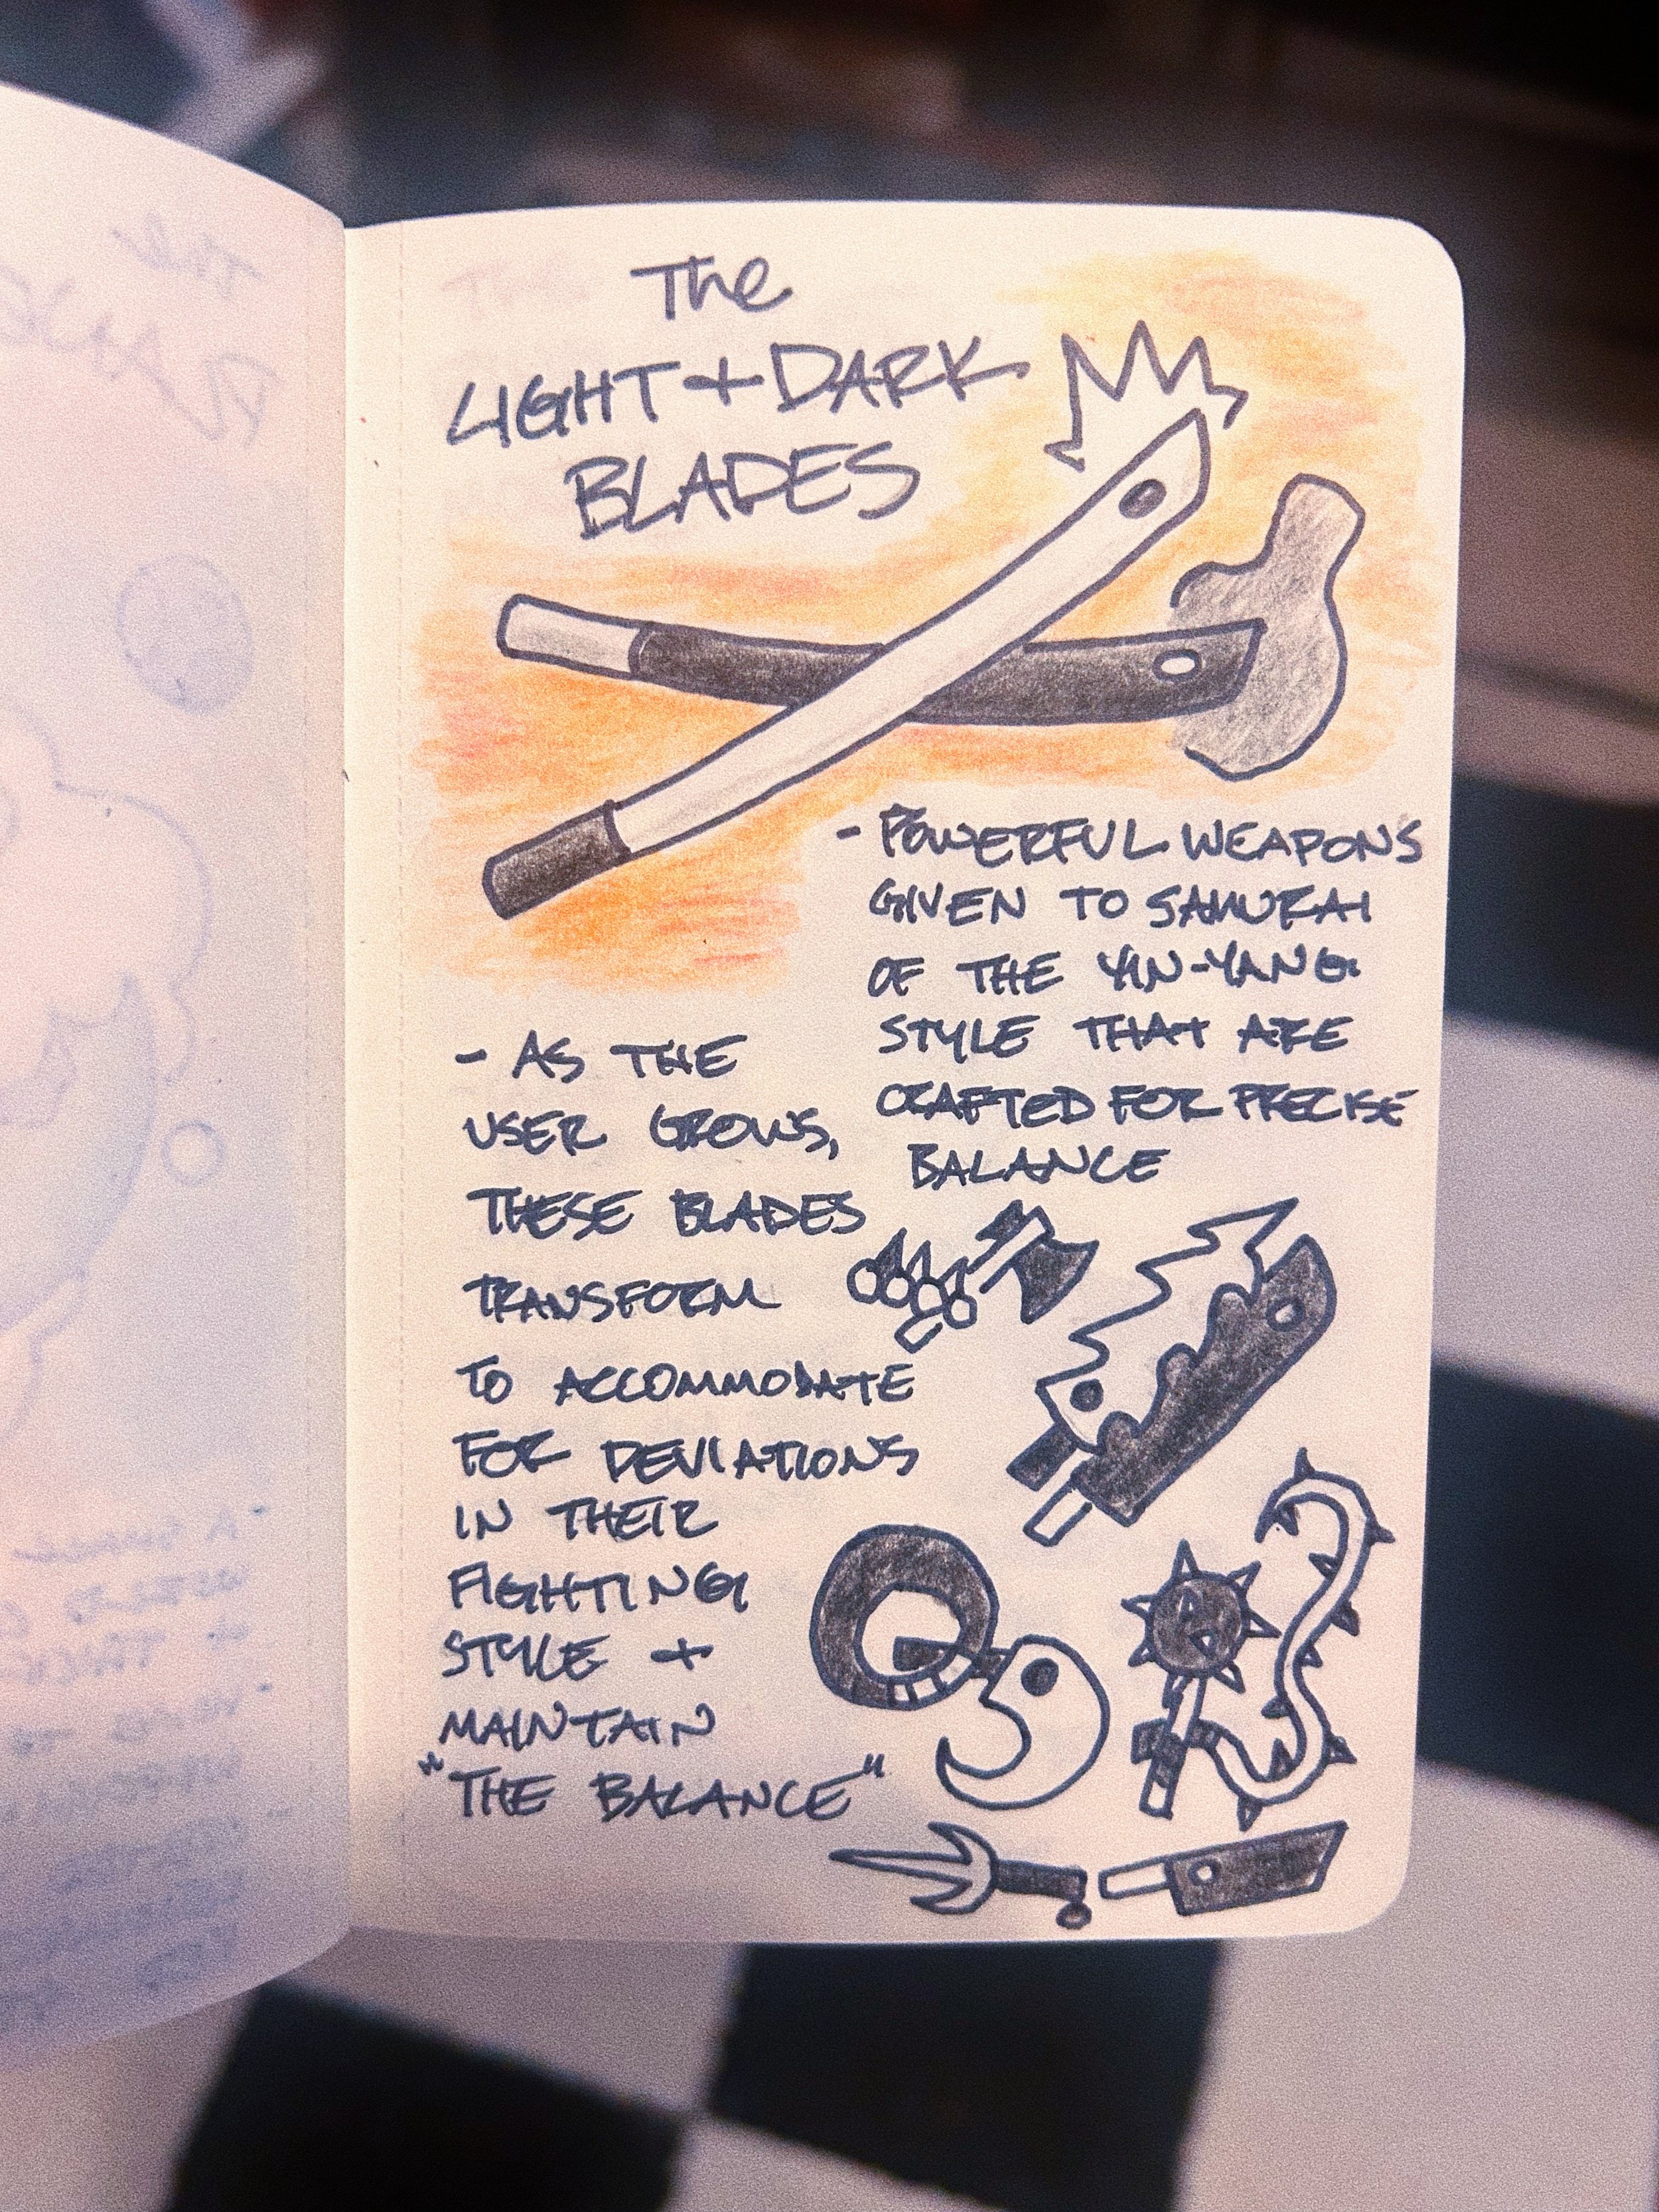 The
LIGHT + DARK
BLADES
- POWERFUL WEAPONS
GIVEN TO SAMURAI
OF THE YIN-YANG
STYLE THAT ARE
CRAFTED FOR PRECISE
BALANCE
- AS THE
USER GROWS,
THESE BLADES
TRANSFORM
TO ACCOMMODATE
FOR DEVIATIONS
IN THEIR
FIGHTING
STYLE +
MAINTAIN
"THE BALANCE"